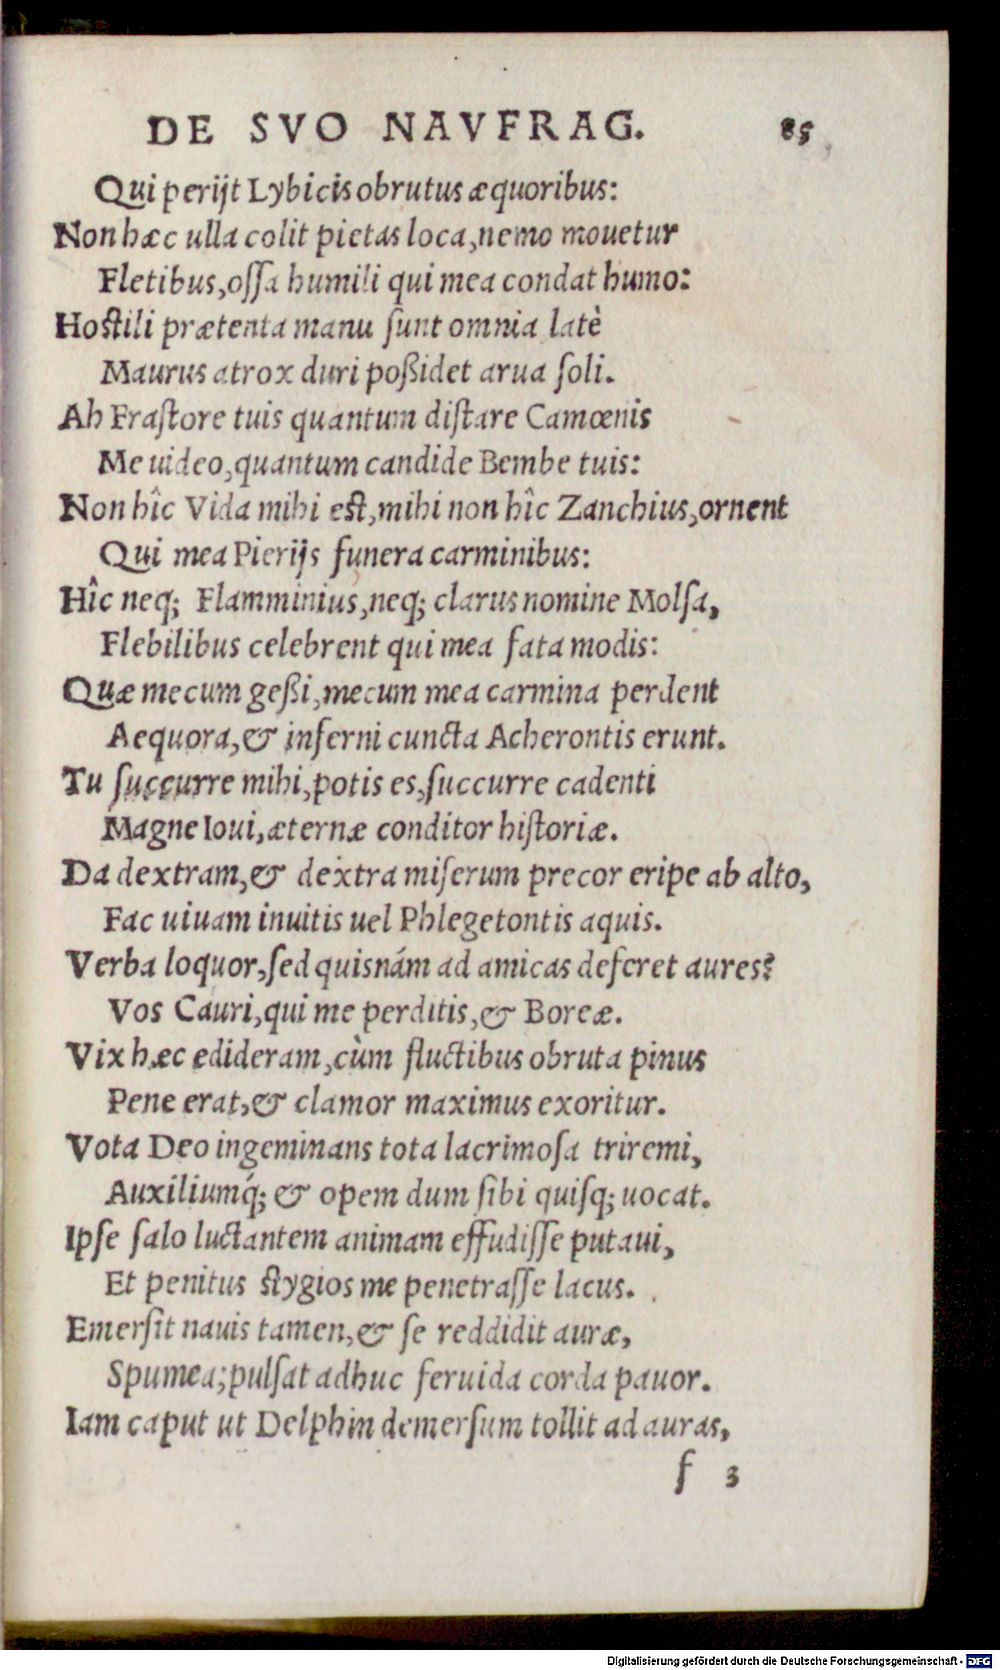 DE SVO NAVFRAG. 85
Qui perijt Lybicis obrutus æquoribus:
Non hæc ulla colit pietas loca, nemo mouetur
Fletibus, ossa humili qui mea condat humo:
Hostili prætenta manu sunt omnia latè
Maurus atrox duri poßidet arua soli.
Ah Frastore tuis quantum distare Camœnis
Me uideo, quantum candide Bembe tuis:
Non hîc Vida mihi est, mihi non hîc Zanchius, ornent
Qui mea Pierijs funera carminibus:
Hîc neq; Flamminius, neq; clarus nomine Molsa,
Flebilibus celebrent qui mea fata modis:
Quæ mecum geßi, mecum mea carmina perdent
Aequora, & inferni cuncta Acherontis erunt.
Tu succurre mihi, potis es, succurre cadenti
Magne Ioui, æternæ conditor historiæ.
Da dextram, & dextra miserum precor eripe ab alto,
Fac uiuam inuitis uel Phlegetontis aquis.
Verba loquor, sed quisnám ad amicas deferet aures?
Vos Cauri, qui me perditis, & Boreæ.
Vix hæc edideram, cùm fluctibus obruta pinus
Pene erat, & clamor maximus exoritur.
Vota Deo ingeminans tota lacrimosa triremi,
Auxiliumq́; & opem dum sibi quisq; uocat.
Ipse salo luctantem animam effudisse putaui,
Et penitus stygios me penetrasse lacus.
Emersit nauis tamen, & se reddidit auræ,
Spumea; pulsat adhuc feruida corda pauor.
Iam caput ut Delphin demersum tollit ad auras,
f 3
Digitalisierung gefördert durch die Deutsche Forschungsgemeinschaft - DFG